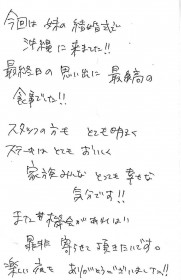 今回は 妹の 結婚式で
沖縄に来ました!!
最終日の 思い出に 最高の
食事でした!!
スタッフの方も とても明るく
ステーキは とても おいしく
家族みんな とっても 幸せな
気分です!!
また 機会があれば
是非 寄せて頂きたいです。
楽しい 夜を ありがとうございました!!